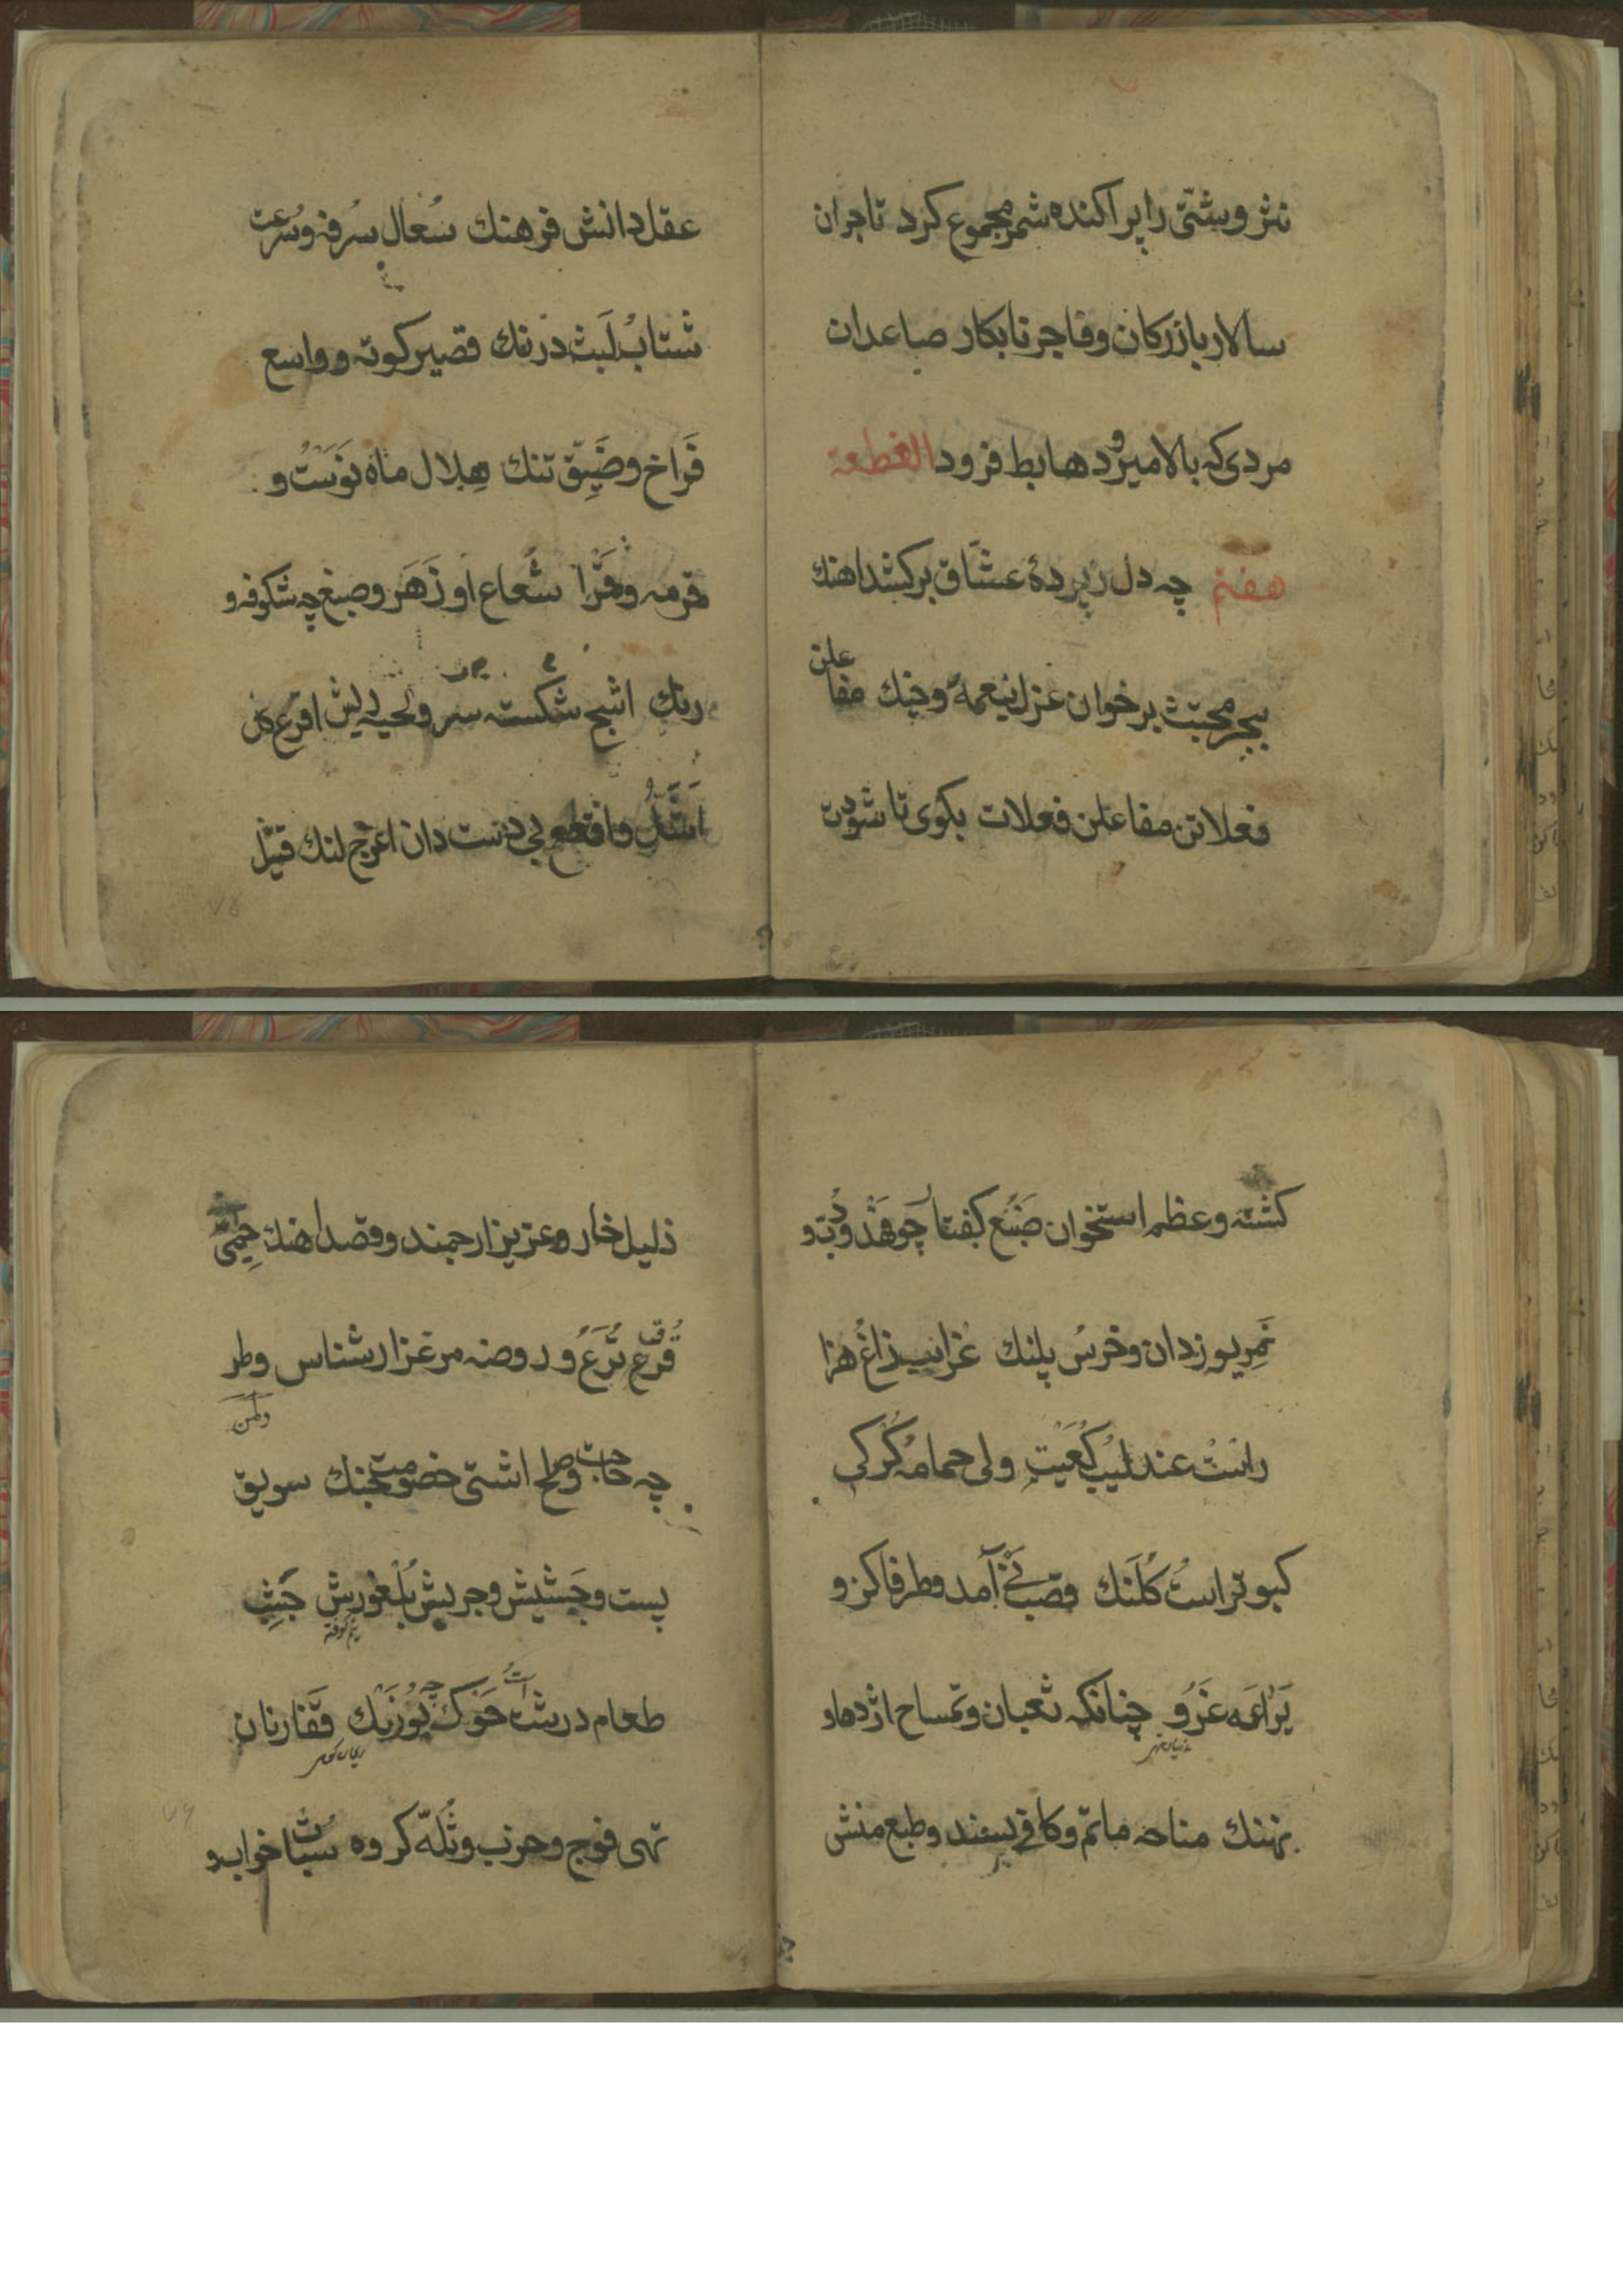 نثر و شتّی را پراکنده شمر مجموع کرد تاجران
سالار بازرکان و فاجر نابکار صاعدان
مردی که بالا میرود هابط فرود القطعة
هفتم چه دل ز پردهٔ عشّاق برکشد اهنك
ببحر مجتث بر خوان غزل بنعمهٔ و چنك مفاعلن
فعلاتن مفاعلن فعلات بکوی تا شودت
عقل دانش فرهنك سُعال سرفه و سُرعت
شتاب لَبث درنك قصیر کوته و واسع
فَراخ و ضَیِّق تنك هِلال ماه نوَسْت و
قرمه و قَرْا شُعاع او زَهَر و صبغ چه شکوفه و
رنك اشج شکسته سر و لحیه ریش اقرع کل
اَشَلّ و اقطع بی دست دان اعرج لنك قتیل
کشته و عظم استخوان ضَبُع کفتار چو فهْد و دُبّ و
نَمِر یوز دان و خرس پلنك غراب زاغ هزا
رانست عندلیب کُعَیْت ولی حمامه کُرکی
کبوتر است کُلَنك قصب نَی آمد و طرفا کز و
یَراعَه غَرْو چنانکه ثعبان و تمساح اژدها و
نهنك مناحه ماتم و کافی پسند و طبع منش
ذلیل خار و عزیز ارجمند و قصد اهنك حِمیٰ
قُرُق تُرَع و روضه مرغزار شناس وطر
چه حاجت و صلح اشتی خصومت جنك سویق
پست و جَشیش و جریش بُلغورش جَشِب
طعام درشت خَوک یُوزَنك قَفار نان
تهی فوج و حزب و ثُلّه کروه سُبات خواب و